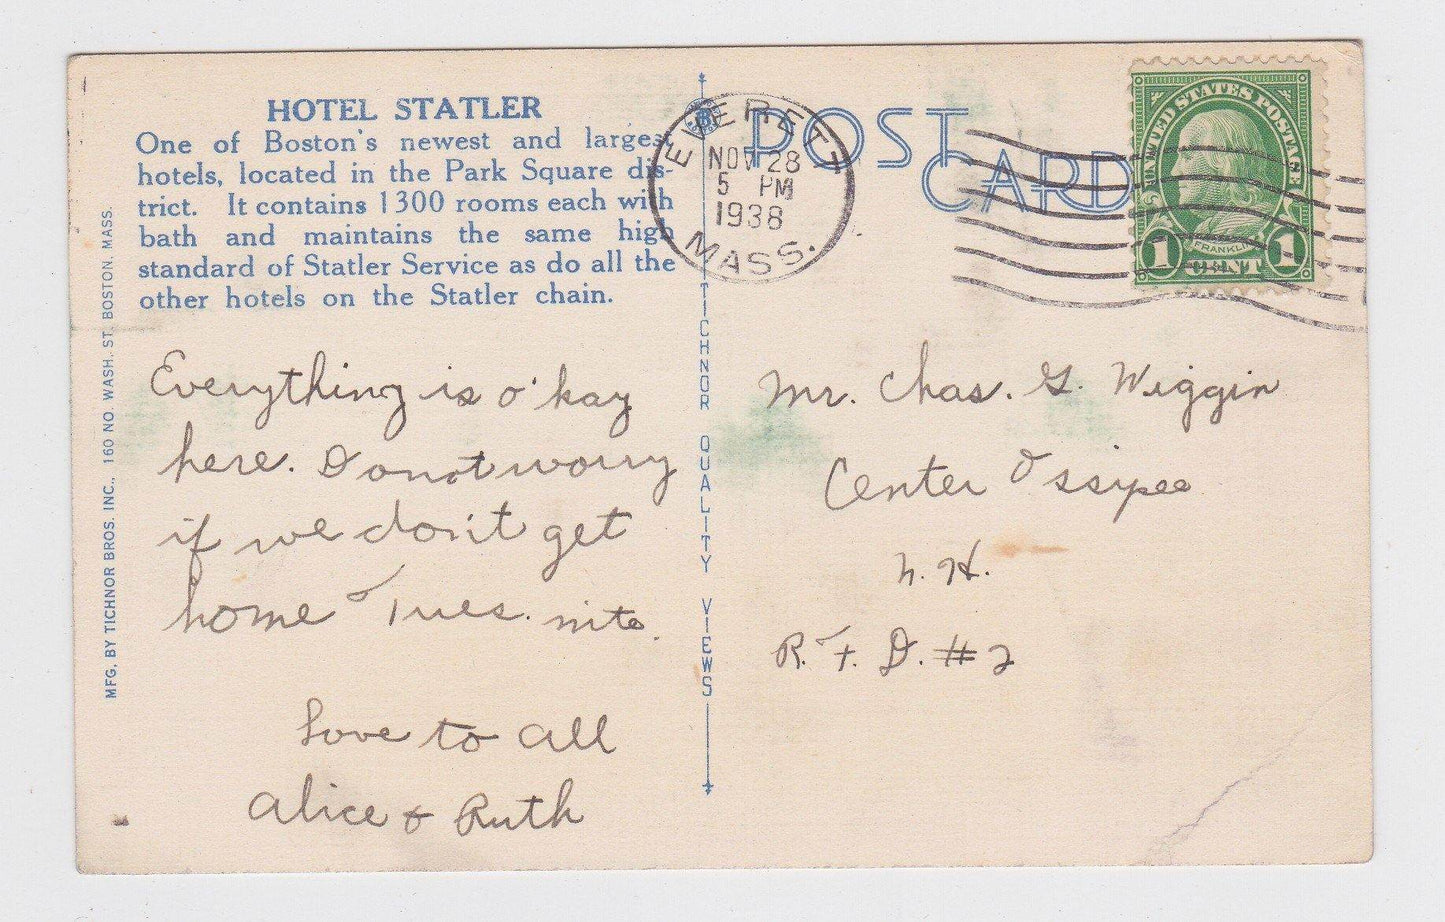 HOTEL STATLER
One of Boston's newest and largest
hotels, located in the Park Square dis-
trict. It contains 1300 rooms each with
bath and maintains the same high
standard of Statler Service as do all the
other hotels on the Statler chain.
MFG. BY TICHNOR BROS. INC., 160 NO. WASH. ST. BOSTON. MASS.
Everything is o'kay
here. Do not worry
if we don't get
home Tues. nite.
Love to all
Alice & Ruth
TICHNOR QUALITY VIEWS
POST
CARD
EVERETT
NOV 28
5 PM
1938
MASS.
UNITED STATES POSTAGE
FRANKLIN
1 CENT 1
Mr. Chas. G. Wiggin
Center Ossipee
N. H.
R. F. D. #2